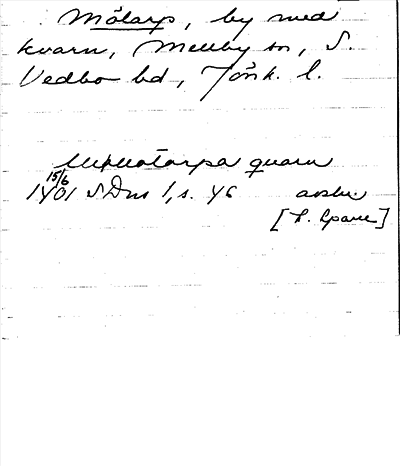 Mölarp, by med
kvarn, Mellby sn, S.
Vedbo hd, Jönk. l.
quarn
15/6
1401 SDns 1, s. 46 avskr.
[L. Sparre]